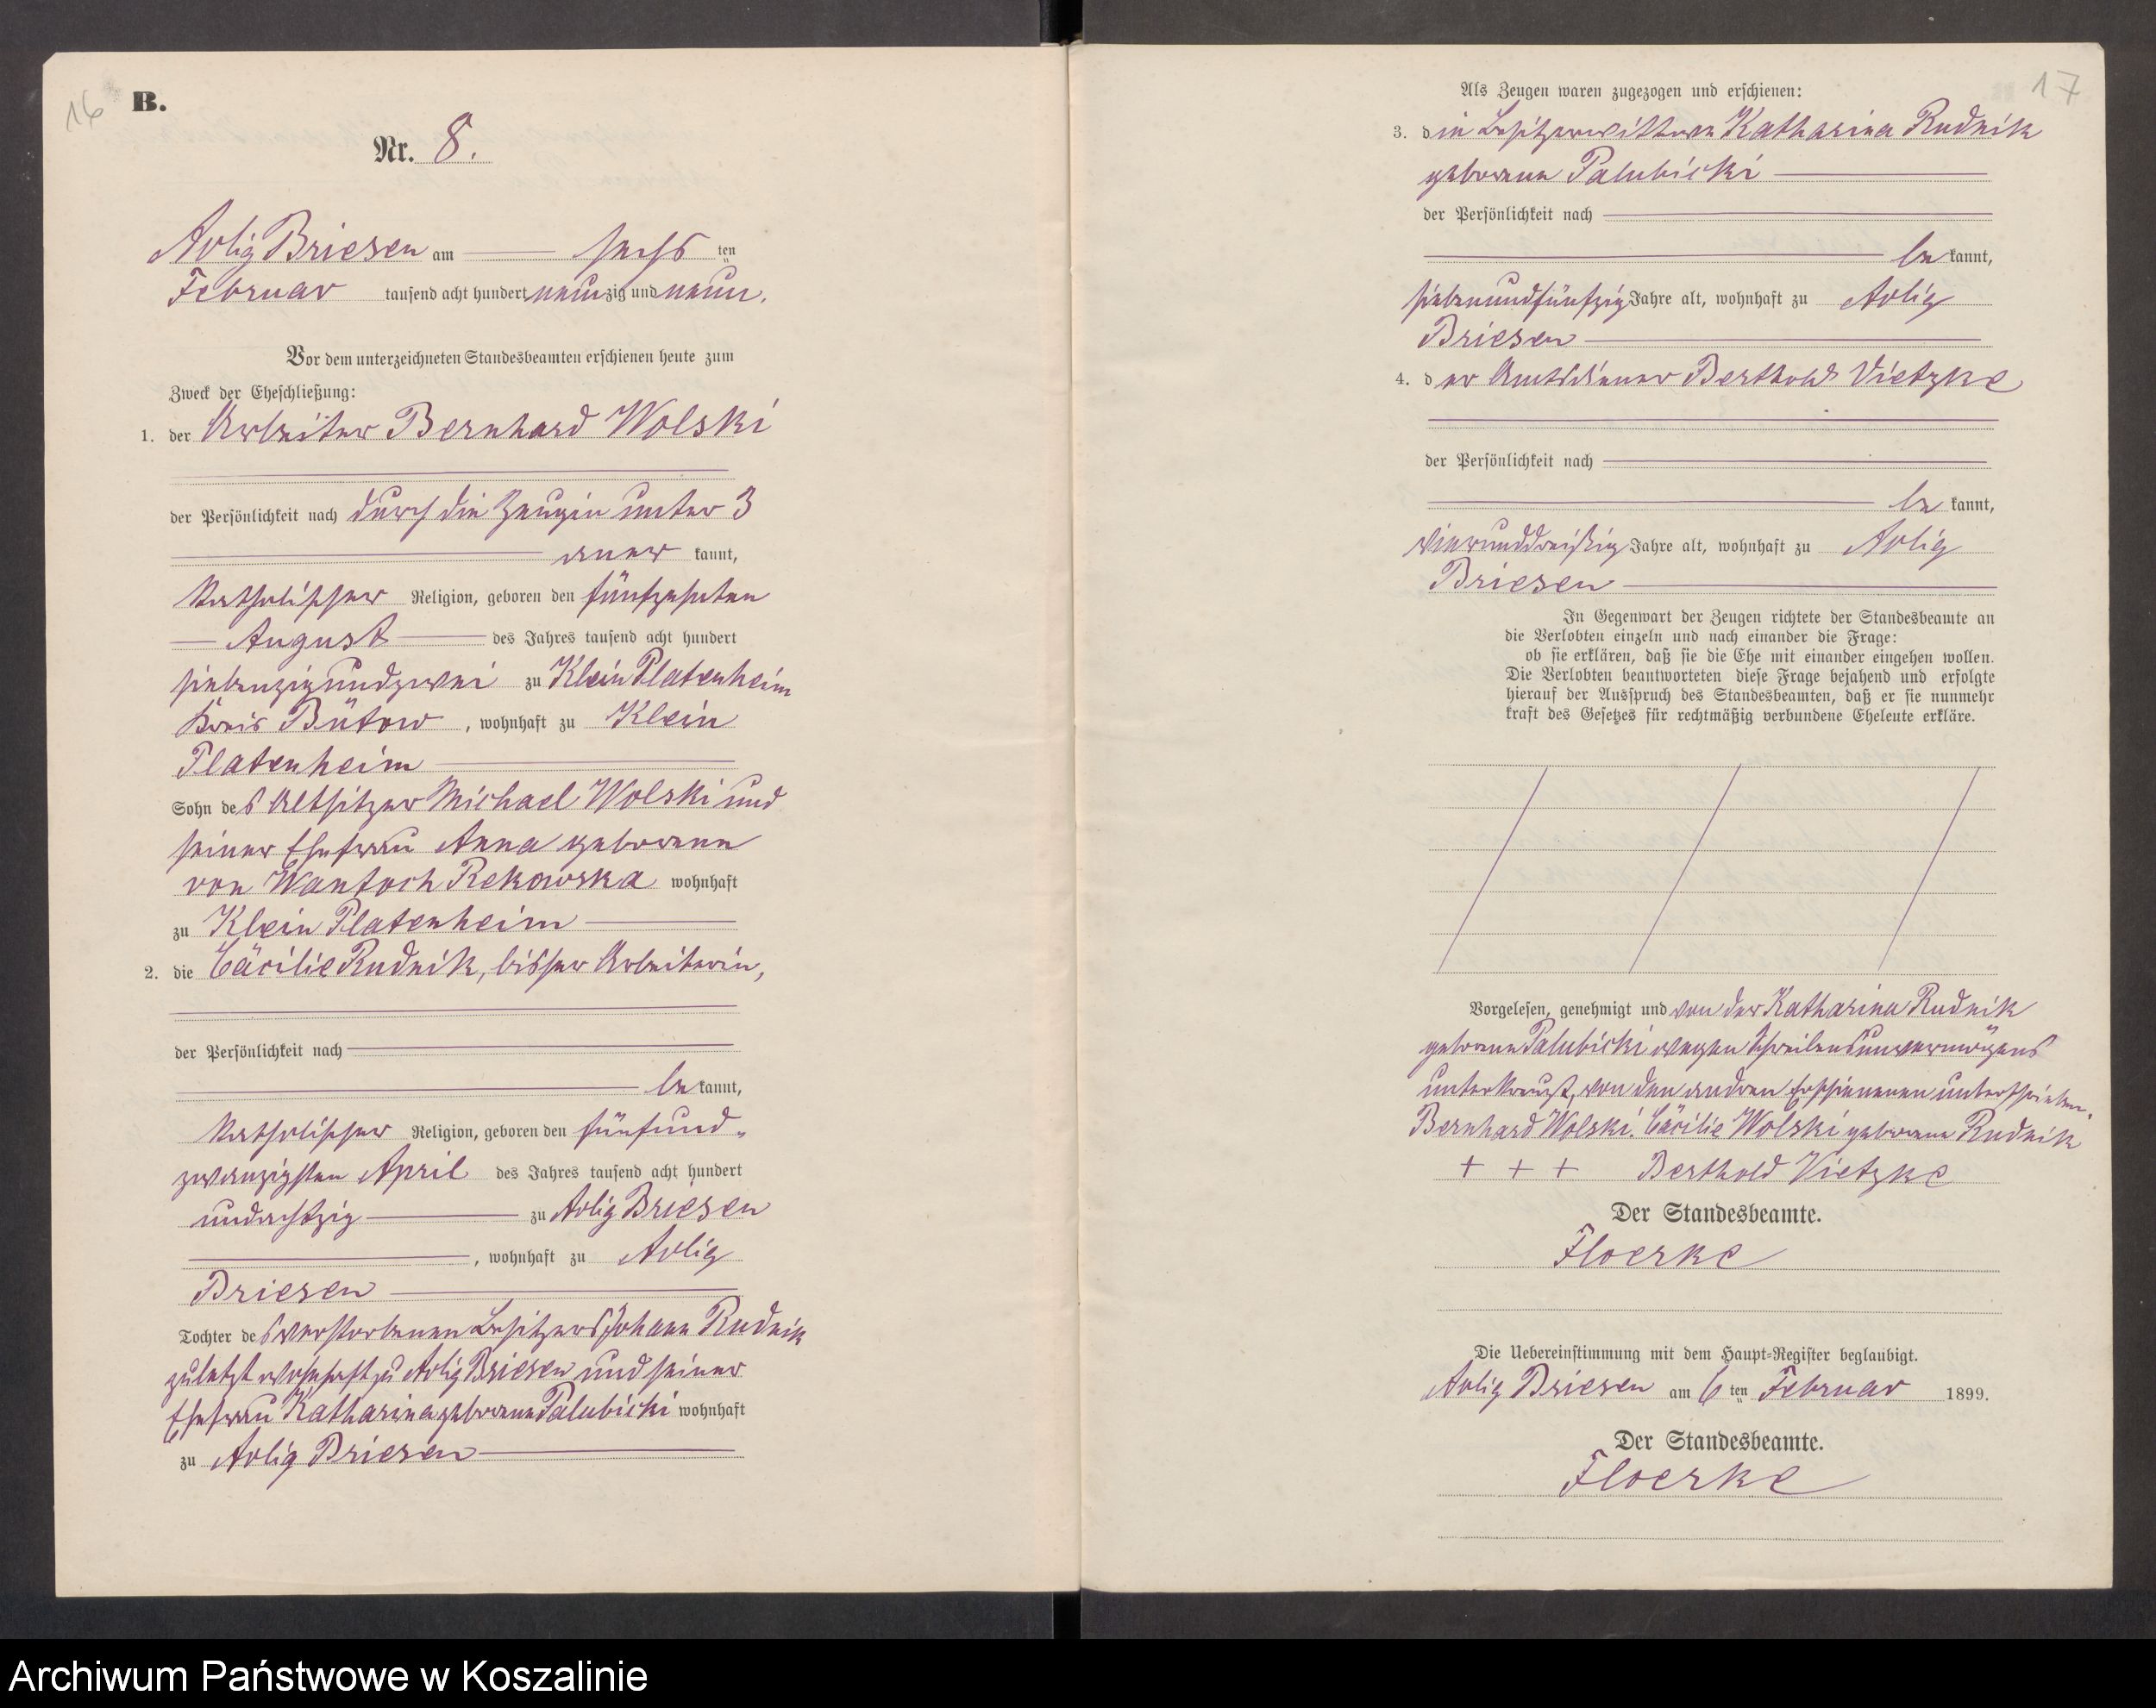 16
B.
Nr. 8.
Adlig Briesen am sechs ten
Februar tausend acht hundert neunzig und neun.
Vor dem unterzeichneten Standesbeamten erschienen heute zum
Zweck der Eheschließung:
1. der Arbeiter Bernhard Wolski
der Persönlichkeit nach durch die Zeugin unter 3
aner kannt,
katholischer Religion, geboren den fünfzehnten
August des Jahres tausend acht hundert
siebenzig und zwei zu Klein Platenheim
Kreis Bütow, wohnhaft zu Klein
Platenheim
Sohn des Altsitzer Michael Wolski und
seiner Ehefrau Anna geborene
von Wantoch Rekowska wohnhaft
zu Klein Platenheim
2. die Cäcilie Rudnik, bisher Arbeiterin,
der Persönlichkeit nach
be kannt,
katholischer Religion, geboren den fünfund-
zwanzigsten April des Jahres tausend acht hundert
undachtzig zu Adlig Briesen
, wohnhaft zu Adlig
Briesen
Tochter des verstorbenen Besitzers Johann Rudnik
zuletzt wohnhaft zu Adlig Briesen und seiner
Ehefrau Katharina geborene Palubicki wohnhaft
zu Adlig Briesen
17
Als Zeugen waren zugezogen und erschienen:
3. die Besitzerwittwe Katharina Rudnik
geborene Palubicki
der Persönlichkeit nach
be kannt,
siebenundfünfzig Jahre alt, wohnhaft zu Adlig
Briesen
4. der Amtsdiener Berthold Vietzke
der Persönlichkeit nach
be kannt,
vierunddreißig Jahre alt, wohnhaft zu Adlig
Briesen
In Gegenwart der Zeugen richtete der Standesbeamte an
die Verlobten einzeln und nach einander die Frage:
ob sie erklären, daß sie die Ehe mit einander eingehen wollen.
Die Verlobten beantworteten diese Frage bejahend und erfolgte
hierauf der Ausspruch des Standesbeamten, daß er sie nunmehr
kraft des Gesetzes für rechtmäßig verbundene Eheleute erkläre.
Vorgelesen, genehmigt und von der Katharina Rudnik
geborene Palubicki wegen Schreibensunvermögens
unterkreuzt, von den andren Erschienenen unterschrieben.
Bernhard Wolski. Cäcilie Wolski geborene Rudnik
+ + + Berthold Vietzke
Der Standesbeamte.
Floerke
Die Uebereinstimmung mit dem Haupt-Register beglaubigt.
Adlig Briesen am 6 ten Februar 1899.
Der Standesbeamte.
Floerke
Archiwum Państwowe w Koszalinie